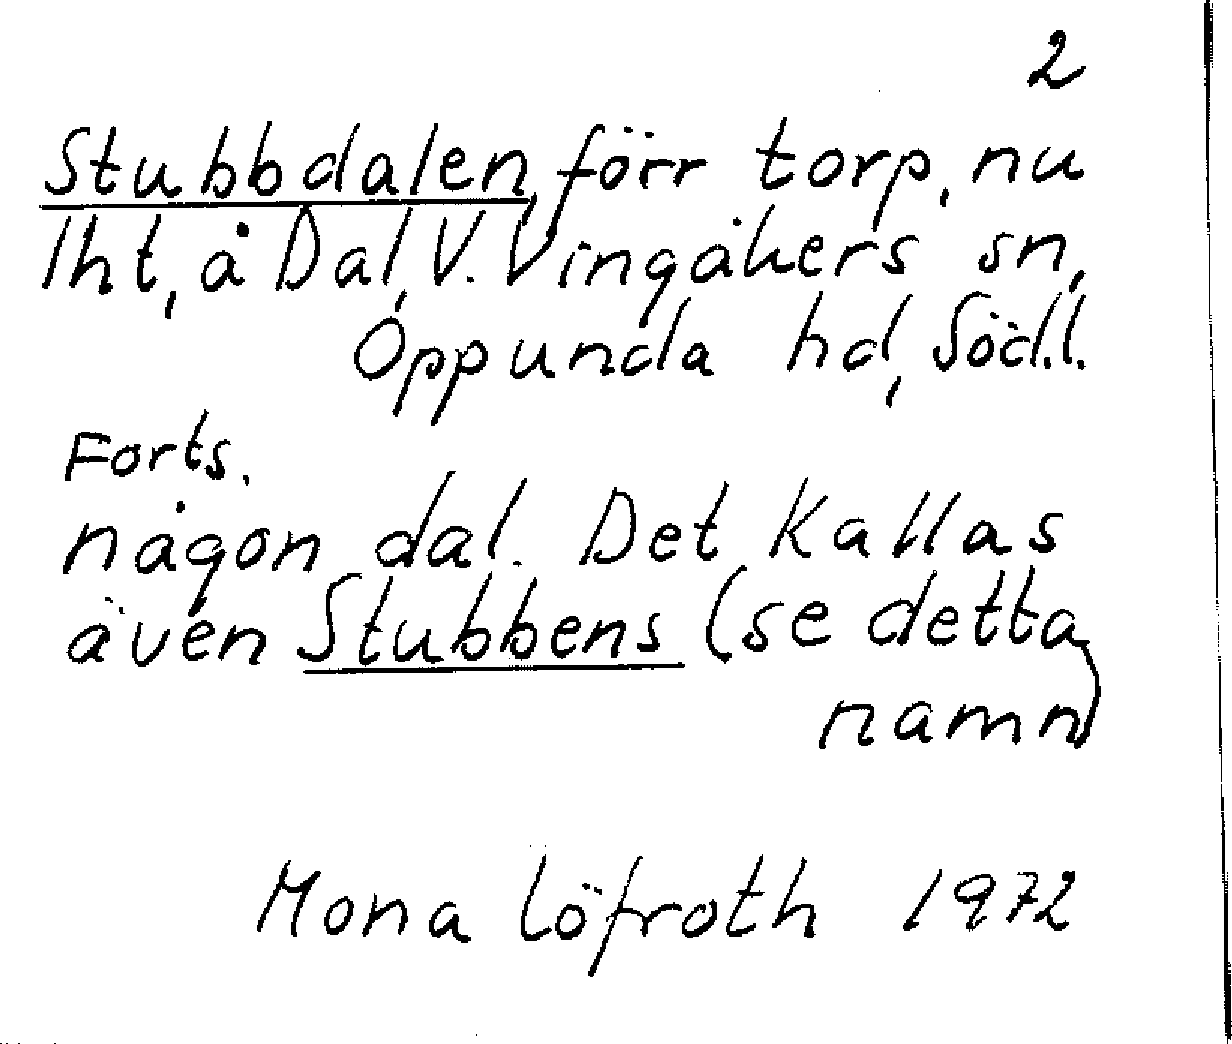 2
Stubbdalen, förr torp, nu
lht, å Dal, V. Vingåkers sn,
Oppunda hd, Södl.
Forts.
någon dal. Det kallas
även Stubbens (se detta
namn)
Mona Löfroth 1972